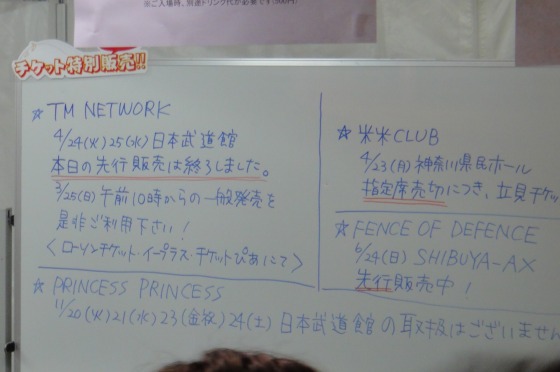 ※ご入場時、別途ドリンク代が必要です(500円)
チケット特別販売!!
☆ TM NETWORK
4/24(火)25(水)日本武道館
本日の先行販売は終了しました。
3/25(日)午前10時からの一般発売を
是非ご利用下さい!
<ローソンチケット・イープラス・チケットぴあにて>
☆ 米米CLUB
4/23(月)神奈川県民ホール
指定席売切につき、立見チケッ
☆ FENCE OF DEFENCE
6/24(日) SHIBUYA-AX
先行販売中!
☆ PRINCESS PRINCESS
11/20(火)21(水)23(金祝)24(土)日本武道館の取扱はございません